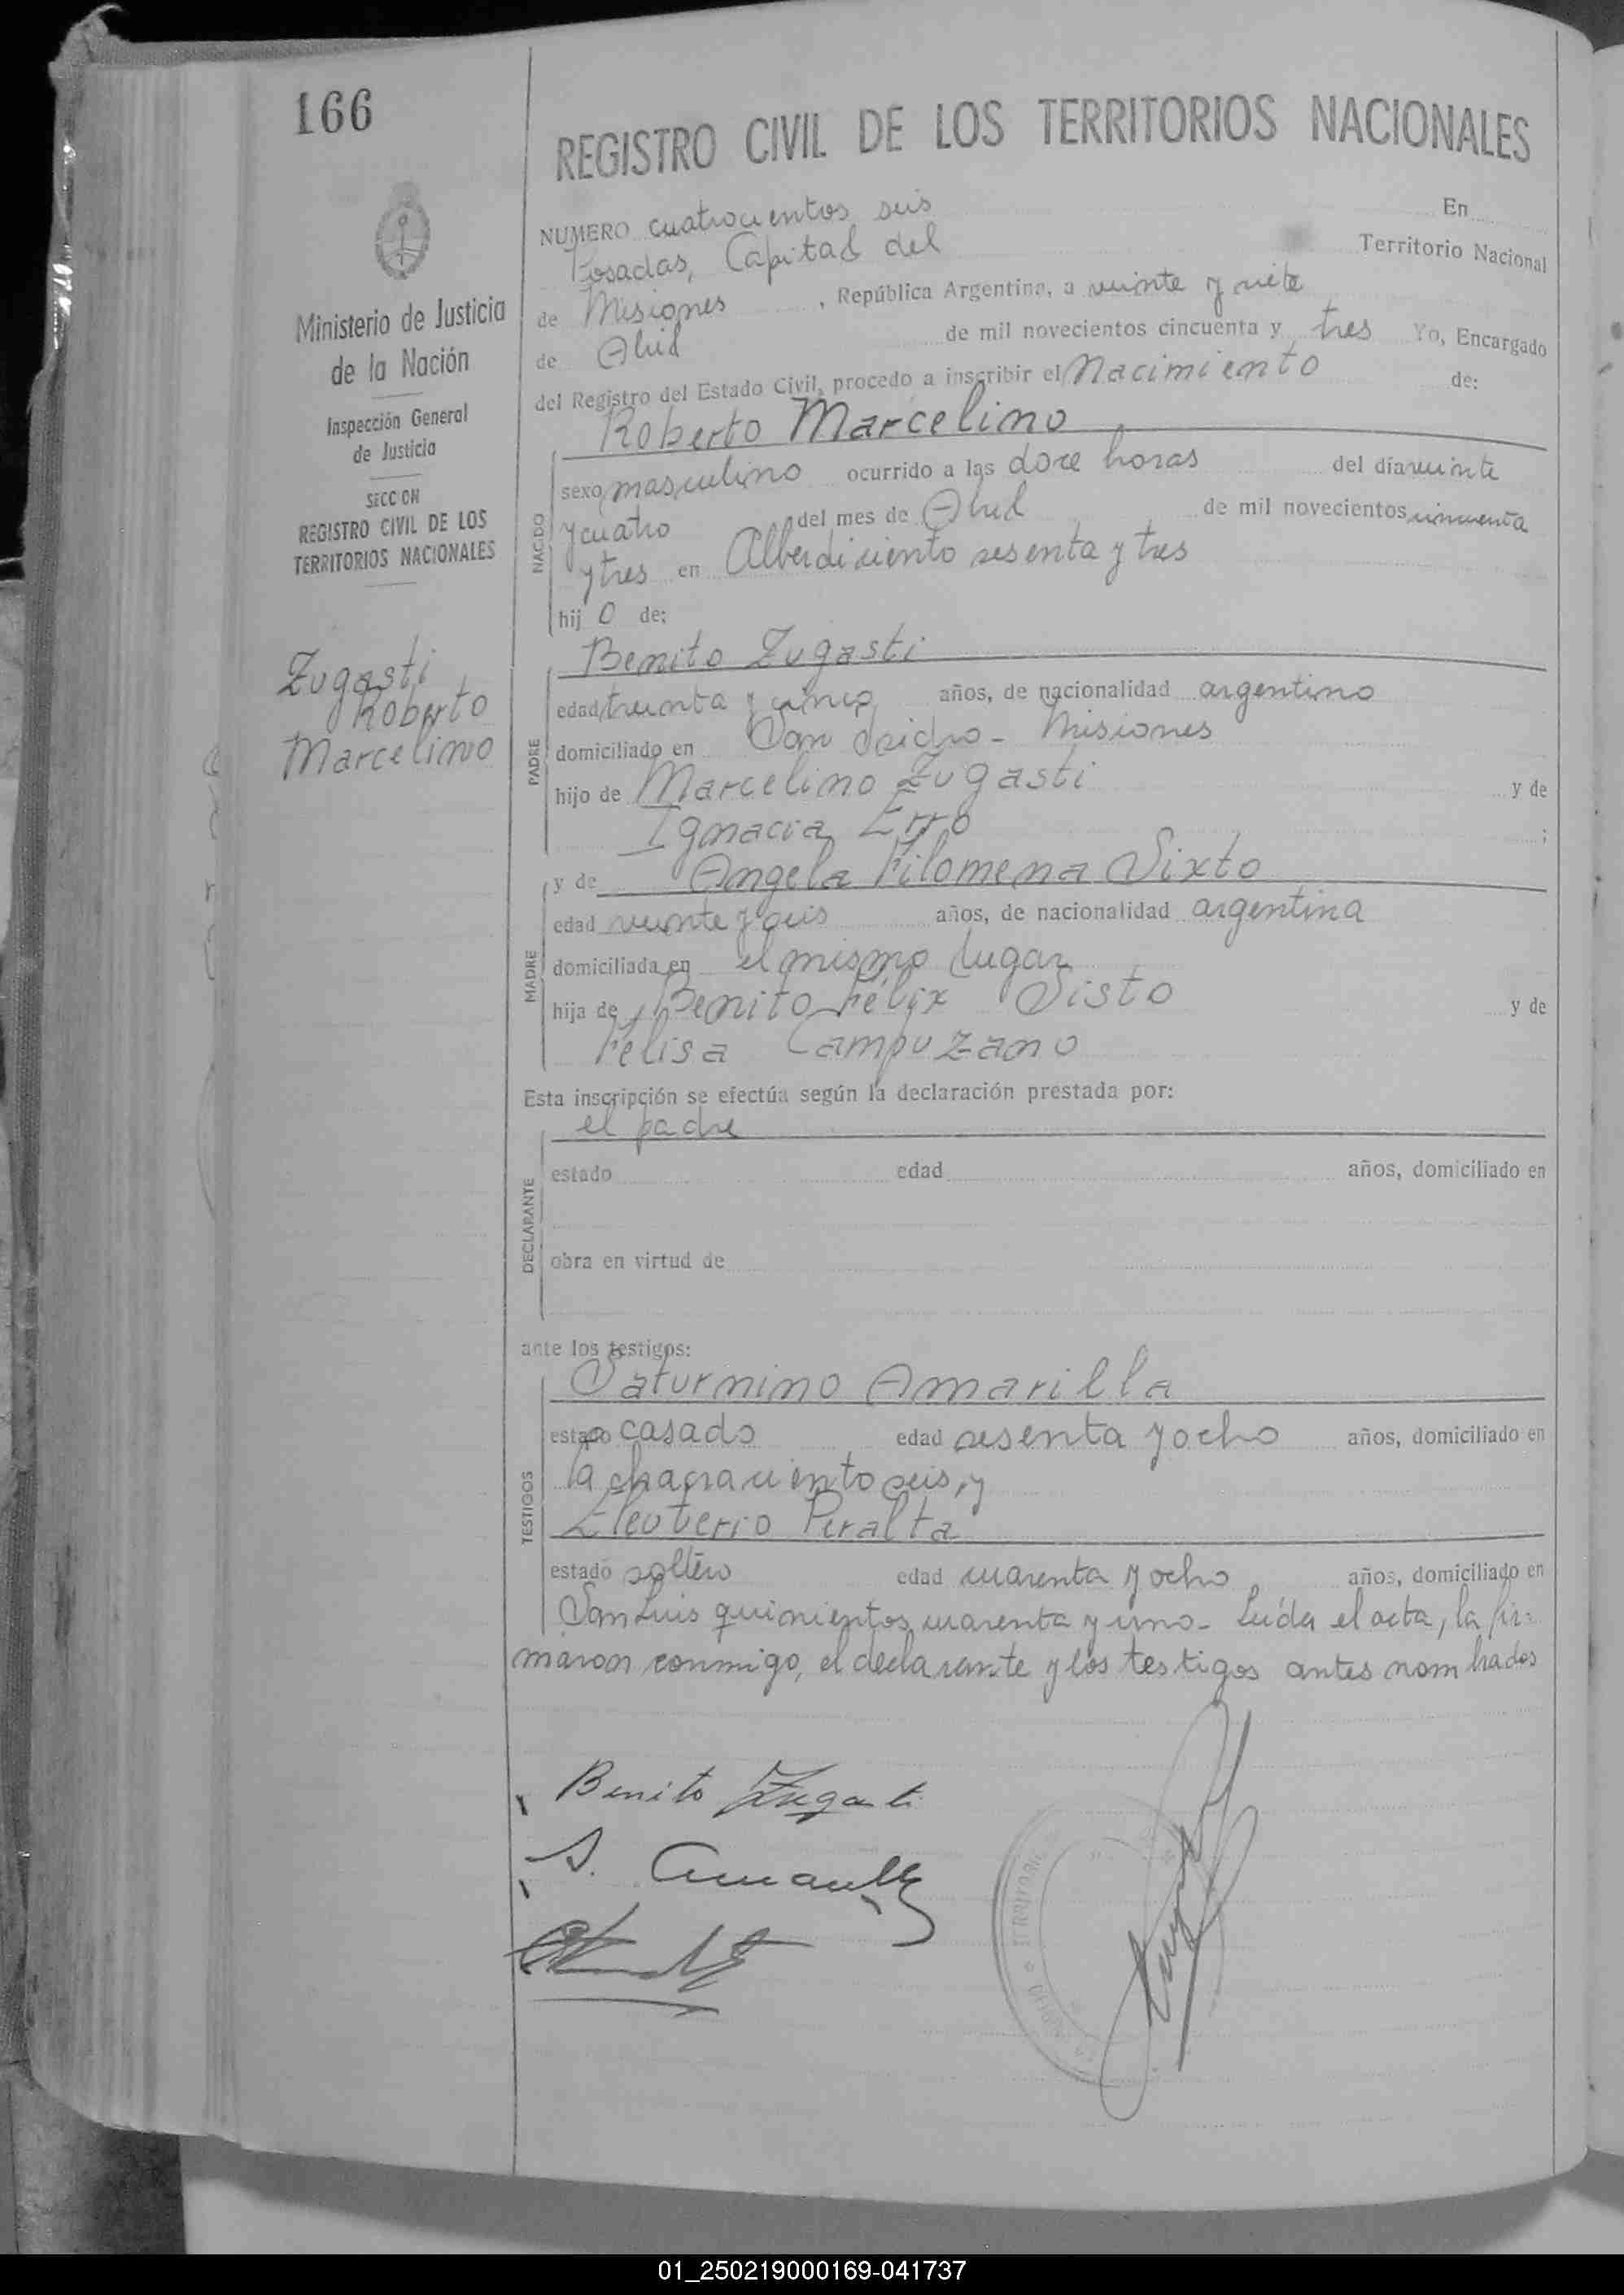 166
REGISTRO CIVIL DE LOS TERRITORIOS NACIONALES
Ministerio de Justicia
de la Nación
Inspección General
de Justicia
SECCION
REGISTRO CIVIL DE LOS
TERRITORIOS NACIONALES
Zugasti
Roberto
Marcelino
NUMERO cuatrocientos seis En
Posadas, Capital del Territorio Nacional
de Misiones, República Argentina, a veinte y siete
de Abril de mil novecientos cincuenta y tres Yo, Encargado
del Registro del Estado Civil, procedo a inscribir el Nacimiento de:
Roberto Marcelino
NACIDO
sexo masculino ocurrido a las doce horas del dia veinte
y cuatro del mes de Abril de mil novecientos cincuenta
y tres en Alberdi ciento sesenta y tres
hij o de:
Benito Zugasti
PADRE
edad treinta y cinco años, de nacionalidad argentino
domiciliado en San Isidro - Misiones
hijo de Marcelino Zugasti y de
Ignacia Erro ;
y de Angela Filomena Sixto
MADRE
edad veinte y seis años, de nacionalidad argentina
domiciliada en el mismo lugar
hija de Benito Félix Sisto y de
Felisa Campuzano
Esta inscripción se efectúa según la declaración prestada por:
el padre
DECLARANTE
estado edad años, domiciliado en
obra en virtud de
ante los testigos:
Saturnino Amarilla
TESTIGOS
estado casado edad sesenta y ocho años, domiciliado en
la chacra ciento seis, y
Eleuterio Peralta
estado soltero edad cuarenta y ocho años, domiciliado en
San Luis quinientos cuarenta y uno - Leída el acta, la fir=
maron conmigo, el declarante y los testigos antes nombrados
Benito Zugasti
S. Amarilla
01_250219000169-041737